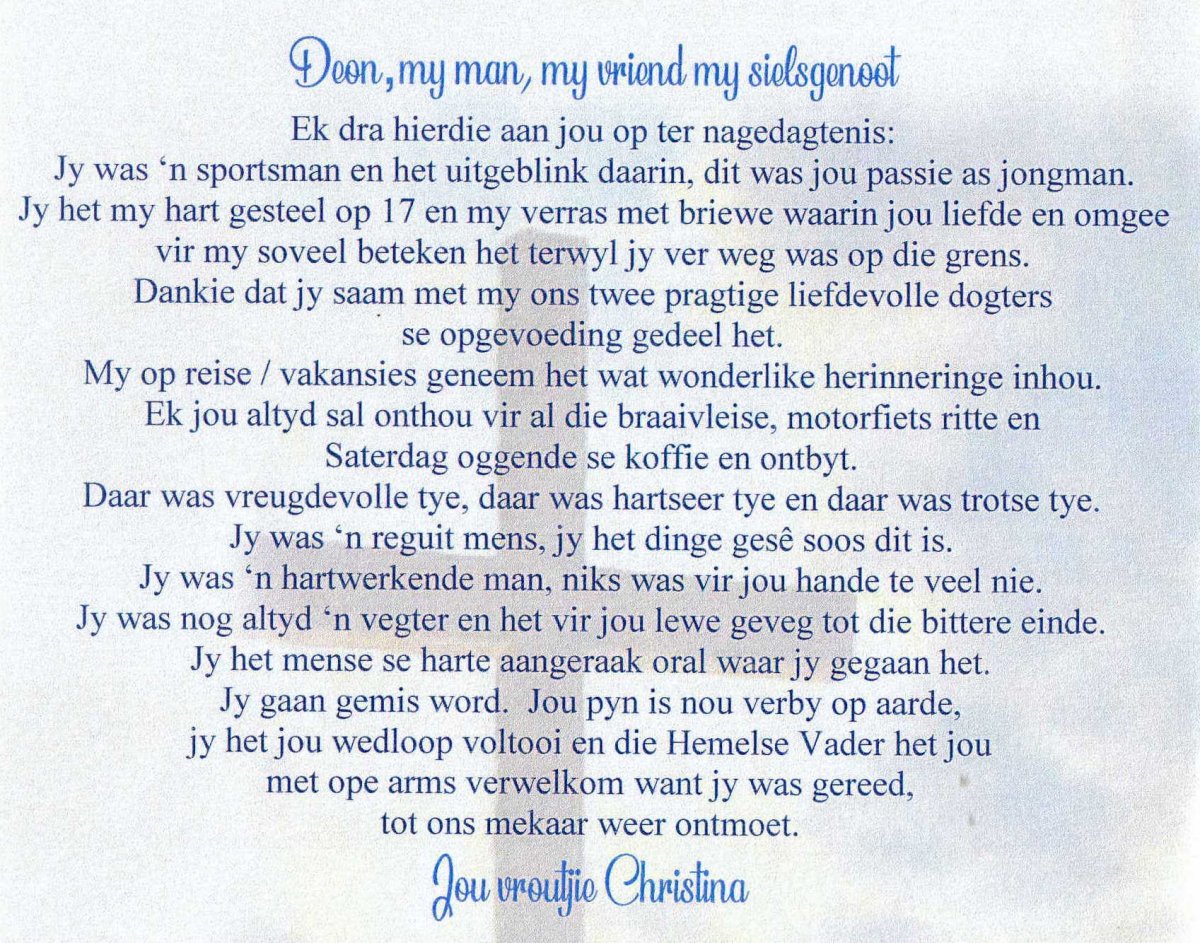 Deon, my man, my vriend my sielsgenoot
Ek dra hierdie aan jou op ter nagedagtenis:
Jy was ‘n sportsman en het uitgeblink daarin, dit was jou passie as jongman.
Jy het my hart gesteel op 17 en my verras met briewe waarin jou liefde en omgee
vir my soveel beteken het terwyl jy ver weg was op die grens.
Dankie dat jy saam met my ons twee pragtige liefdevolle dogters
se opgevoeding gedeel het.
My op reise / vakansies geneem het wat wonderlike herinneringe inhou.
Ek jou altyd sal onthou vir al die braaivleise, motorfiets ritte en
Saterdag oggende se koffie en ontbyt.
Daar was vreugdevolle tye, daar was hartseer tye en daar was trotse tye.
Jy was ‘n reguit mens, jy het dinge gesê soos dit is.
Jy was ‘n hartwerkende man, niks was vir jou hande te veel nie.
Jy was nog altyd ‘n vegter en het vir jou lewe geveg tot die bittere einde.
Jy het mense se harte aangeraak oral waar jy gegaan het.
Jy gaan gemis word.  Jou pyn is nou verby op aarde,
jy het jou wedloop voltooi en die Hemelse Vader het jou
met ope arms verwelkom want jy was gereed,
tot ons mekaar weer ontmoet.
Jou vroutjie Christina